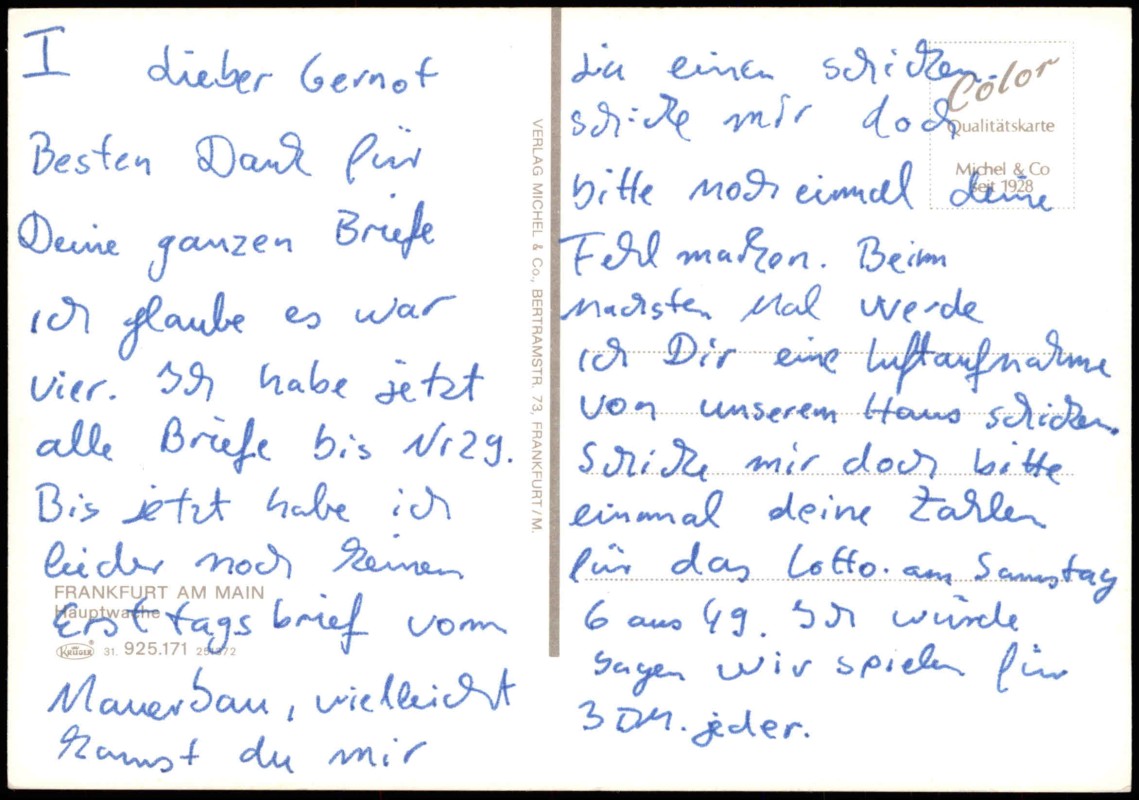 I
Lieber Gernot
Besten Dank für
Deine ganzen Briefe
ich glaube es war
vier. Ich habe jetzt
alle Briefe bis Nr 29.
Bis jetzt habe ich
leider noch keinen
FRANKFURT AM MAIN
Hauptwache
Ersttagsbrief vom
KRÜGER 31. 925.171
Mauerbau, vielleicht
kannst du mir
VERLAG MICHEL & Co., BERTRAMSTR. 73, FRANKFURT/M.
Color
Qualitätskarte
Michel & Co
seit 1928
da einen schicken.
schicke mir doch
bitte noch einmal deine
Fehl marken. Beim
nachsten Mal werde
ich Dir eine Luftaufnahme
von unserem Haus schicken.
Schicke mir doch bitte
einmal deine Zahlen
für das Lotto. am Samstag
6 aus 49. Ich würde
sagen wir spielen für
3 DM. jeder.